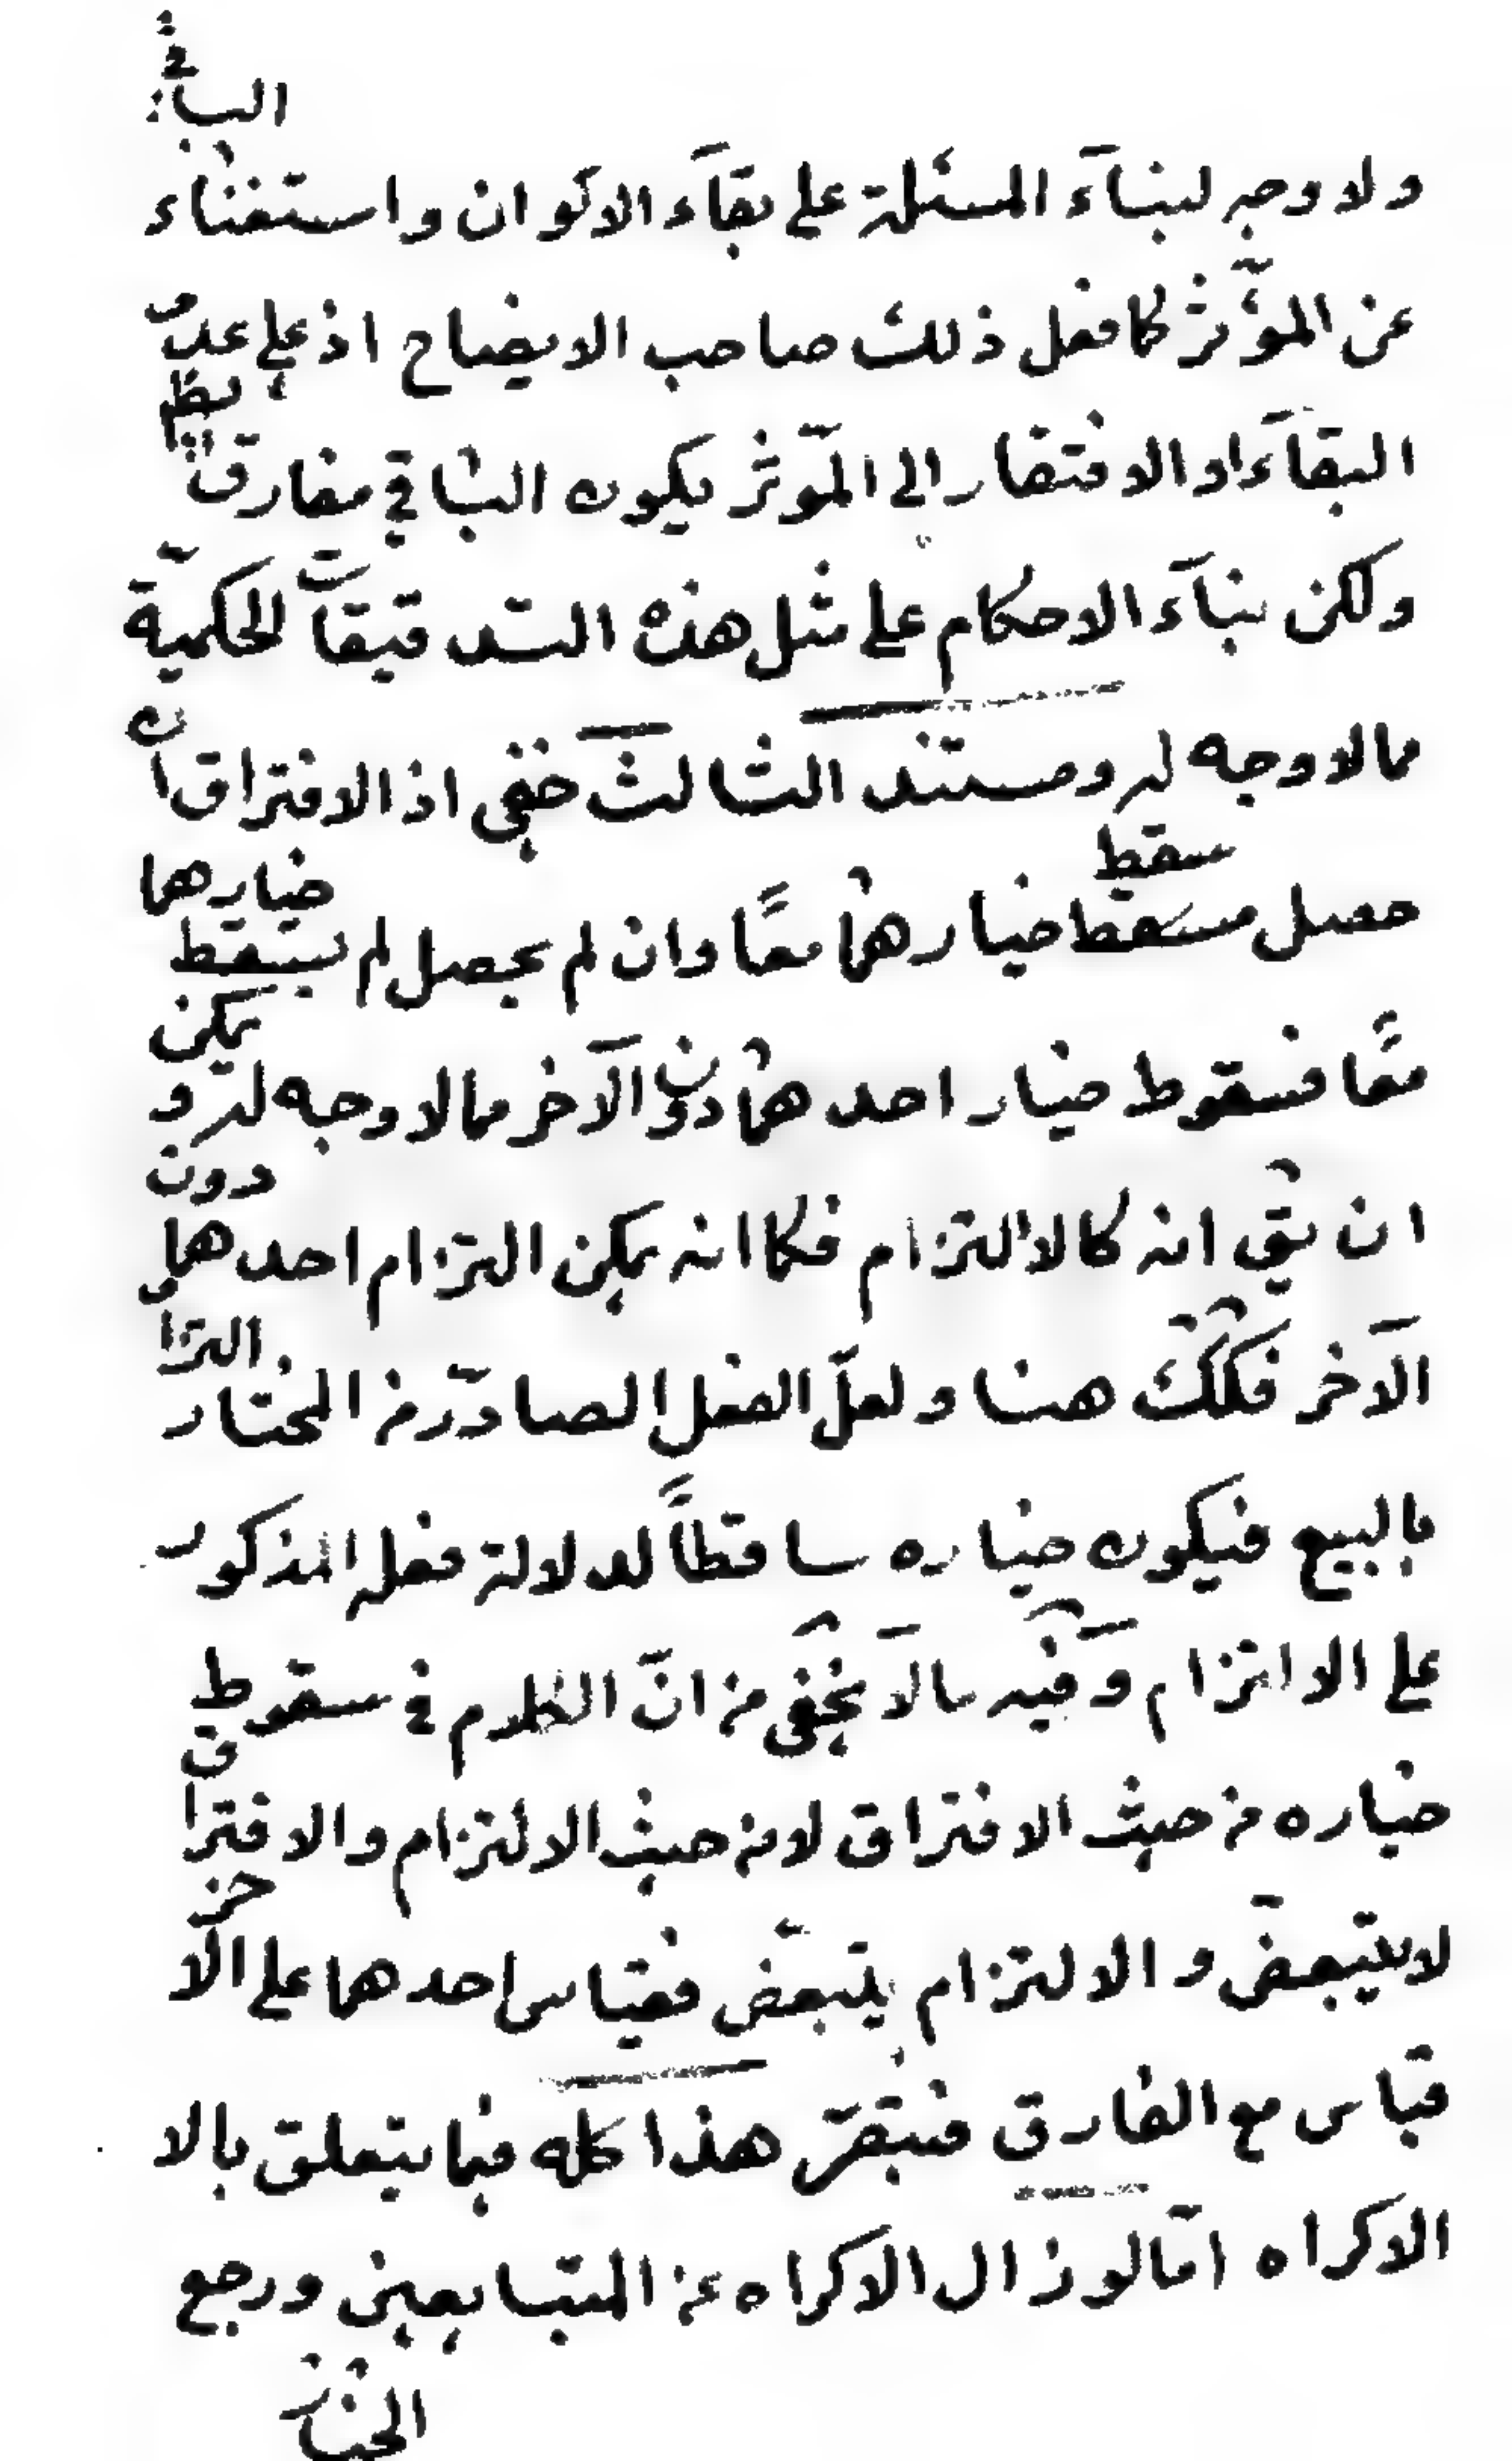 ولا وجه لبناء المسئلة على بقاء الاكوان واستغناء الباقي
عن المؤثر كما فعل ذلك صاحب الايضاح اذ على عدم
البقاء او الافتقار الى المؤثر يكون الباقي مفارقا ايضا
ولكن بناء الاحكام على مثل هذه التدقيقات الحكمية
مما لا وجه له ومستند الثالث خفى اذ الافتراق ان
حصل سقط سقط خيارهما معًا وان لم يحصل لم يسقط خيارهما
معًا فسقوط خيار احدهما دون الآخر مما لا وجه له و يمكن
ان يق انه كالالتزام فكما انه يمكن التزام احدهما دون
الآخر فكك هنا ولعل الفعل الصادر من المختار التزا
بالبيع فيكون خياره ساقطاً لدلالة فعله المذكور
على الالتزام وفيه ما لا يخفى من انّ الكلام في سقوط
خياره من حيث الافتراق لا من حيث الالتزام والافتراق
لا يتبعض والالتزام يتبعض فقياس احدهما على الآخر
قياس مع الفارق هذا كله فيما يتعلق بالا
الاكراه امّا لو زال الاكراه عن المتبايعين ورجع